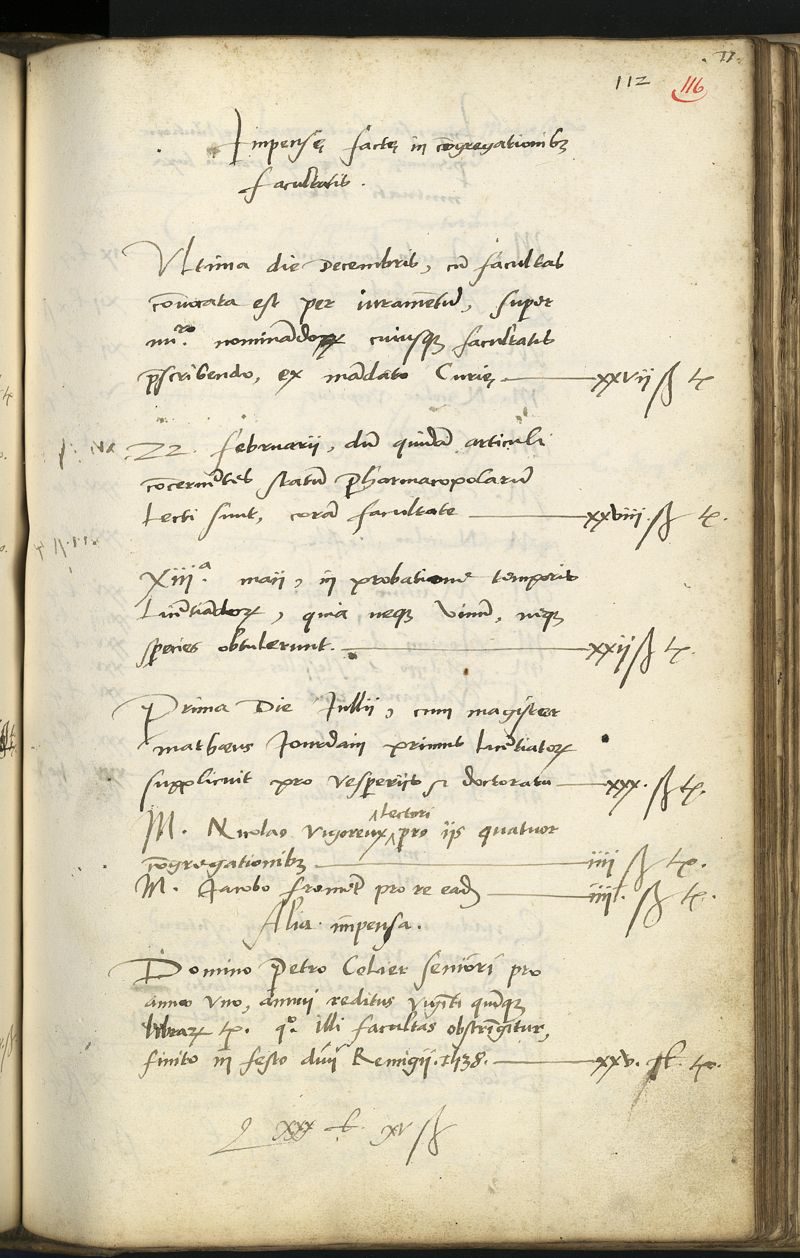 112 116
Impensę factę in cōgregationibȝ
facultatis .
Vltima die Decembris, cū facultas
cōuocata est per iuramētū, super
nu.ro nominādoꝝ cuiusqȝ facultatis
p̄scribendo, ex mādato Curię — xxvii ß t.
22 februarii, dū quidā articuli
cōcernētes statū pharmacopolarū
Lecti sunt, corā facultate — xxviii. ß t.
Xiii.a maii, in probatione temporis
Licētiandoꝝ, quia neqȝ vinū, neqȝ
species obtulerunt. — xxii ß t.
Prima Die Jullii, cum magister
mathæus Jourdain primus licētiatoꝝ
supplicuit pro vesperiis et doctoratu — xxx. ß t.
M. Nicolao vigoreux lectori pro iis quatuor
cōgregationibȝ — iiii ß t.
M. Jacobo fromēt pro re eadē — iiii. ß t.
Alia impensa.
Domino Petro Celier seniori pro
anno vno, annui reditus viginti quinqȝ
libraꝝ t. q.o illi facultas obstringitur,
finito in festo diui Remigii .1538. — xxv. lt. t.
xxx t. xv ß